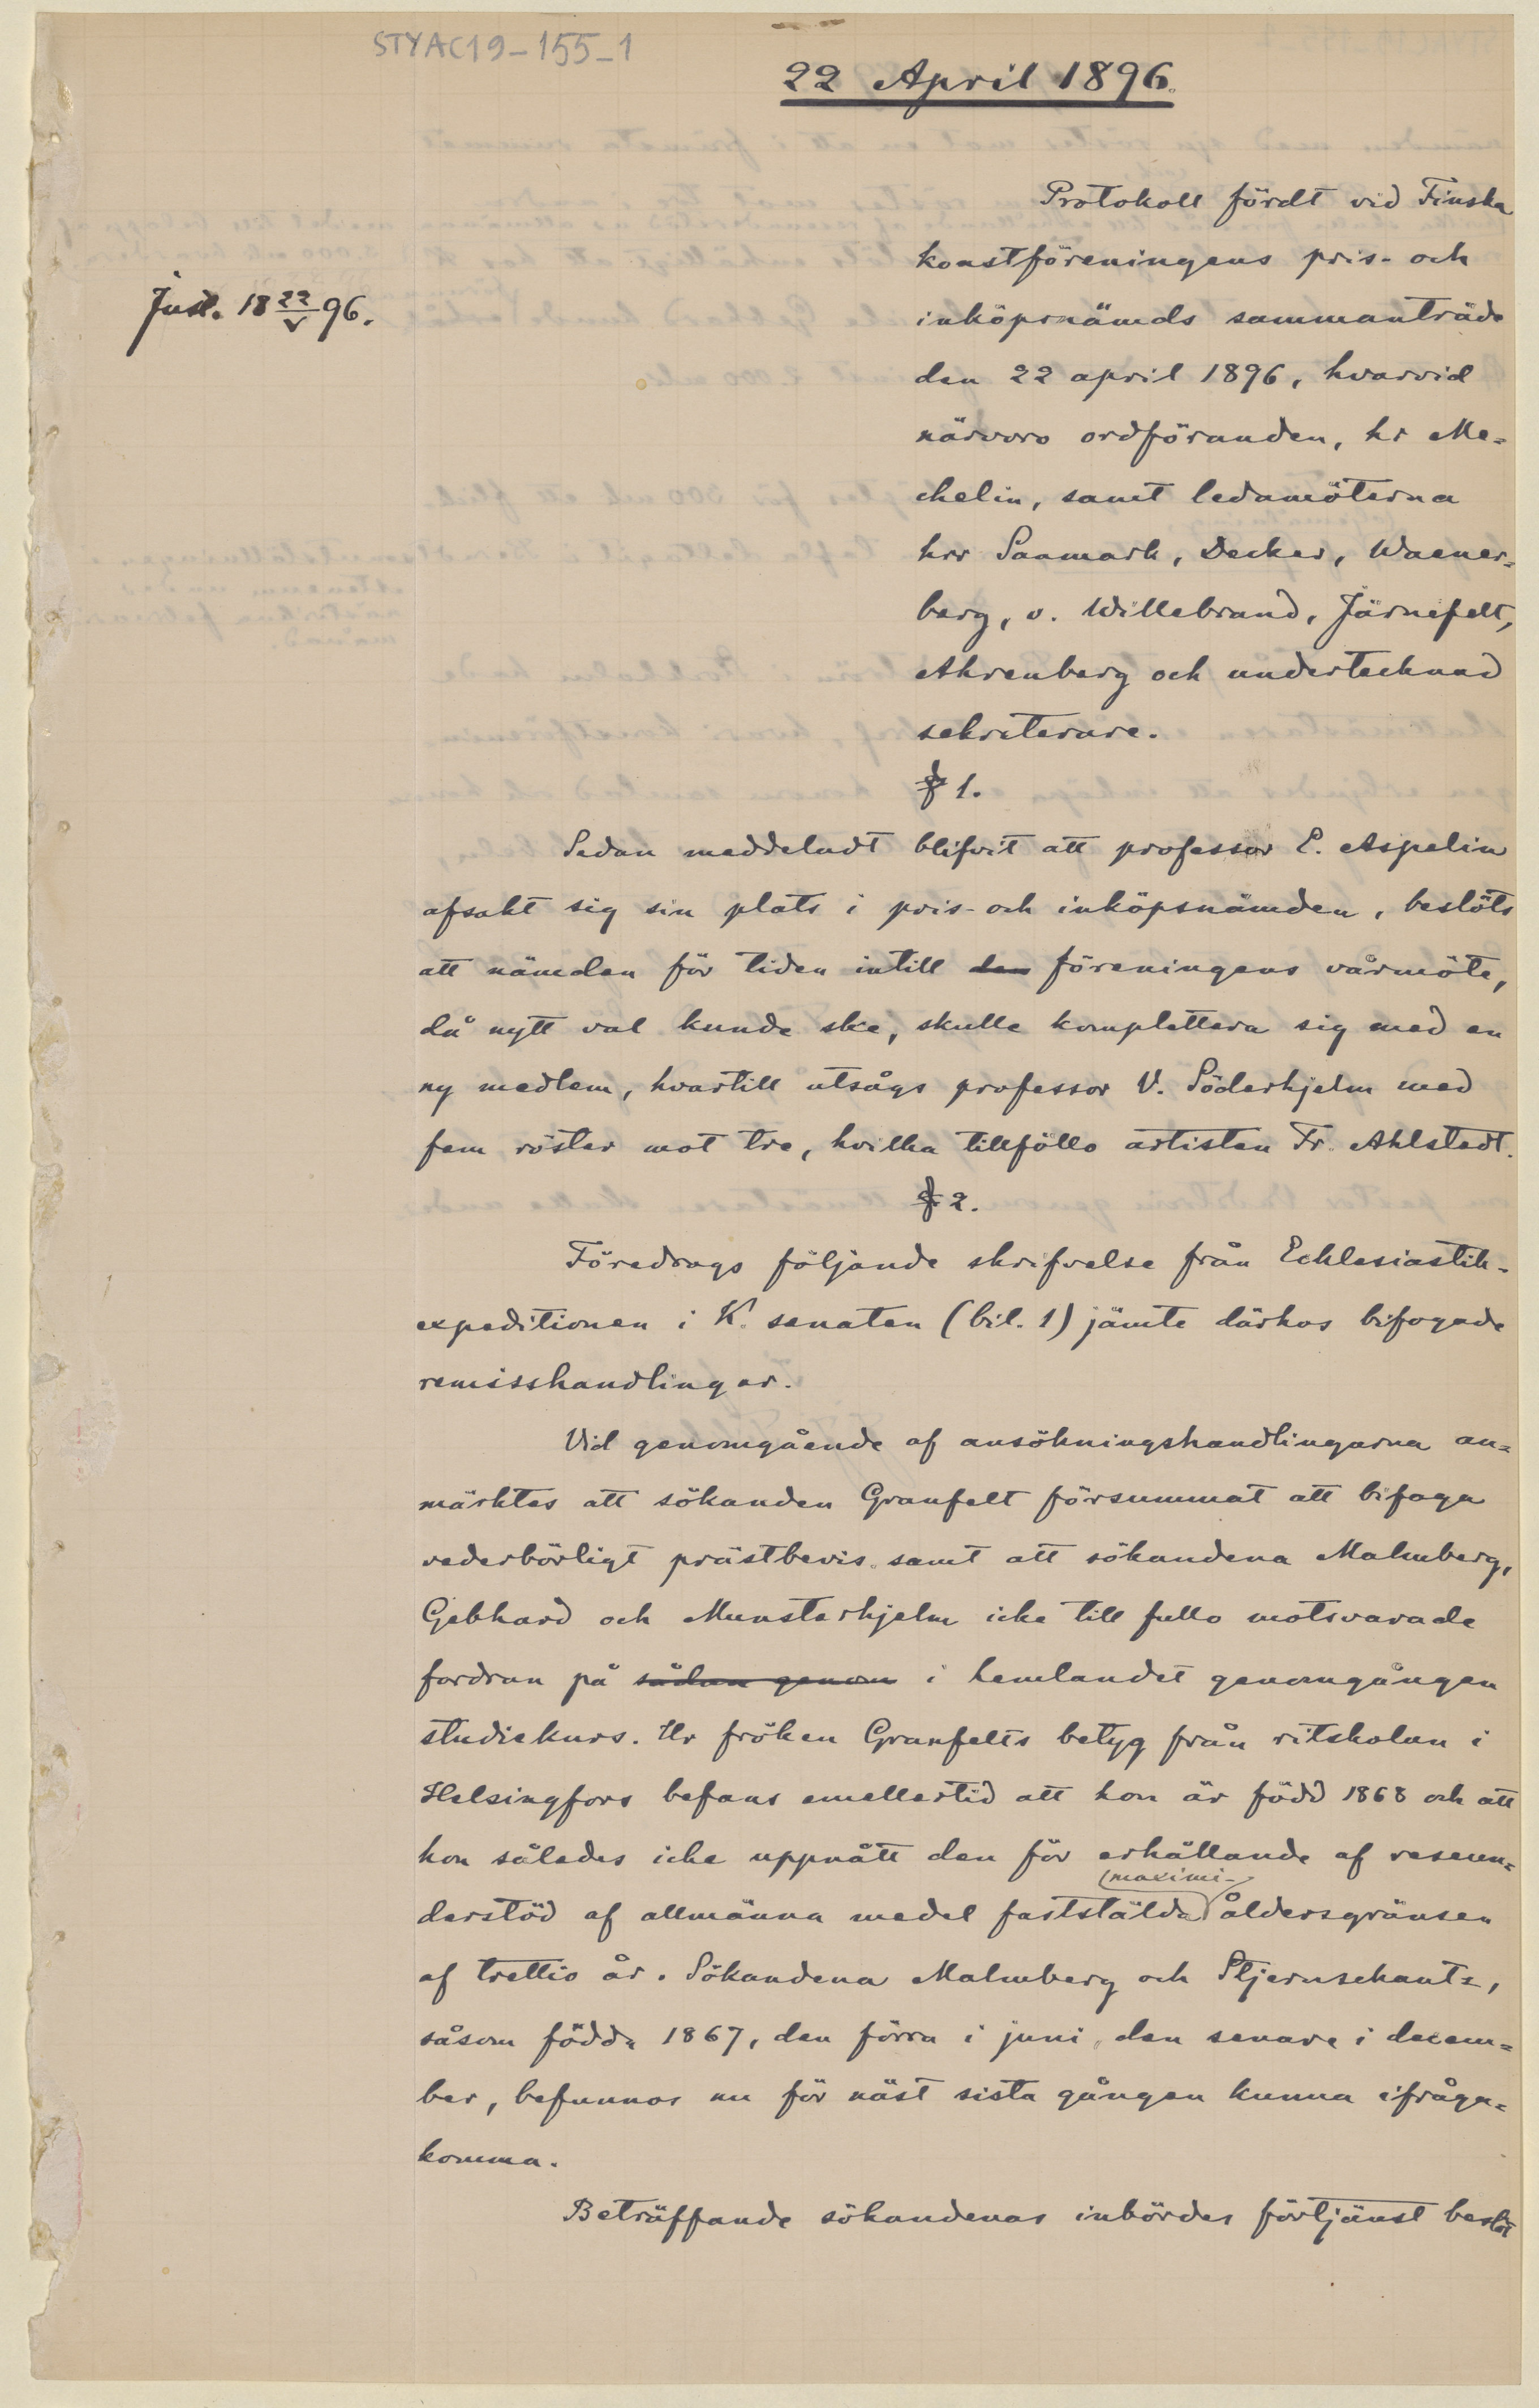 STYAC19-155-1
22 April 1896.
Just. 18 22/V 96.
Protokoll fördt vid Finska
konstföreningens pris- och
inköpsnämds sammanträde
den 22 april 1896, hvarvid
närvoro ordföranden, hr Me=
chelin, samt ledamöterna
hrr Sanmark, Decker, Waener=
berg, v. Willebrand, Järnefelt,
Ahrenberg och undertecknad
sekreterare.
§ 1.
Sedan meddeladt blifvit att professor E. Aspelin
afsakt sig sin plats i pris- och inköpsnämden, beslöts
att nämden för tiden intill den föreningens vårmöte,
då nytt val kunde ske, skulle komplettera sig med en
ny medlem, hvartill utsågs professor V. Söderhjelm med
fem röster mot tre, hvilka tillföllo artisten Fr. Ahlstedt.
§ 2.
Föredrags följande skrifvelse från Ecklesiastik-
expeditionen i K. senaten (bil. 1) jämte därhos bifogade
remisshandlingar.
Vid genomgående af ansökningshandlingarna an=
märktes att sökanden Granfelt försummat att bifoga
vederbörligt prästbevis samt att sökandena Malmberg,
Gebhard och Munsterhjelm icke till fullo motsvarade
fordran på sådan genom i hemlandet genomgången
studiekurs. Ur fröken Granfelts betyg från ritskolan i
Helsingfors befans emellertid att hon är född 1868 och att
hon således icke uppnått den för erhållande af reseun=
(maximi-
derstöd af allmänna medel fastställda åldersgränsen
af trettio år. Sökandena Malmberg och Stjernschantz,
såsom födda 1867, den förra i juni, den senare i decem=
ber, befunnos nu för näst sista gången kunna ifråga=
komma.
Beträffande sökandenas inbördes förtjänst beslöt